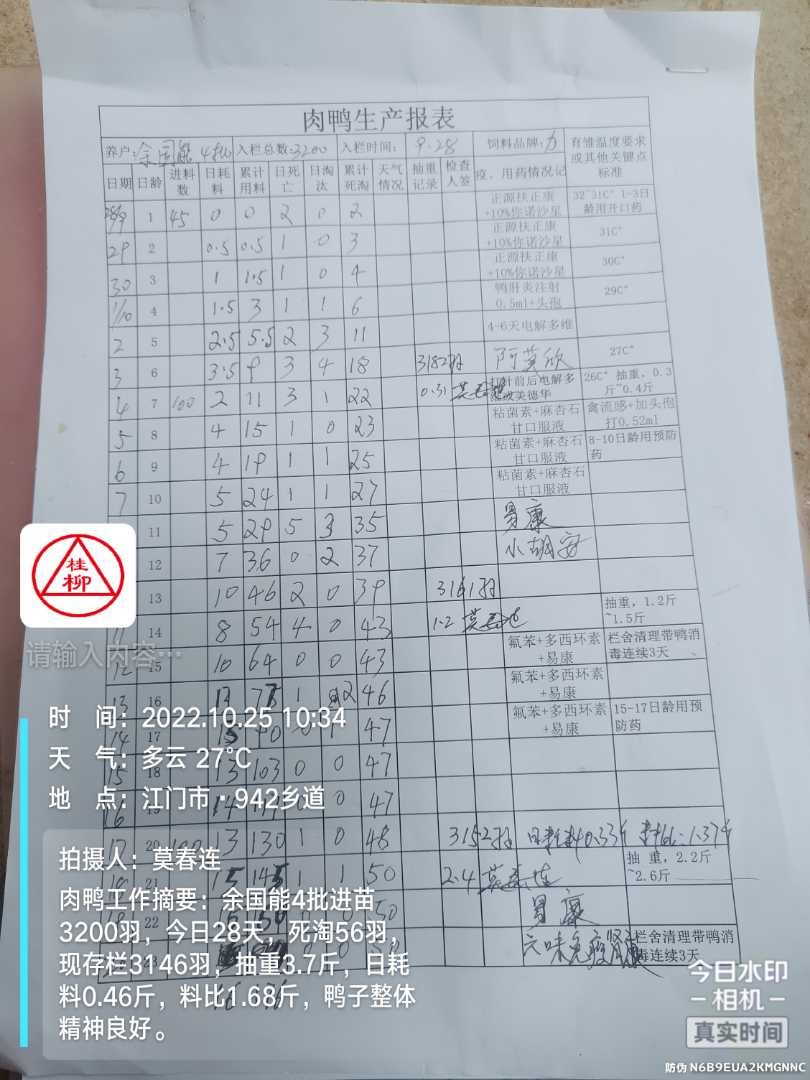 肉鸭生产报表
养户:余国能 4批 入栏总数:3200 入栏时间: 9.28 饲料品牌: 育雏温度要求或其他关键点标准
日期 日龄 进料数 日耗料 累计用料 日死亡 日淘汰 累计死淘 天气情况 抽重记录 检查人签 疫,用药情况记
1 45 0 0 2 0 2 正源扶正康+10%你诺沙星 32~31C° 1-3日龄用开口药
29 2 0.5 0.5 1 0 3 正源扶正康+10%你诺沙星 31C°
30 3 1 1.5 1 0 4 正源扶正康+10%你诺沙星 30C°
1/10 4 1.5 3 1 1 6 鸭肝炎注射0.5ml+头孢 29C°
2 5 2.5 5.5 2 3 11 4-6天电解多维
3 6 3.5 9 3 4 18 3182羽 阿莫欣 27C°
4 7 100 2 11 3 1 22 0.31 针前后电解多 26C° 抽重,0.3斤~0.4斤
5 8 4 15 1 0 23 粘菌素+麻杏石甘口服液 禽流感+加头孢打0.52ml
6 9 4 19 1 1 25 粘菌素+麻杏石甘口服液 8-10日龄用预防药
7 10 5 24 1 1 27 粘菌素+麻杏石甘口服液
11 5 29 5 3 35 易康
12 7 36 0 2 37
13 10 46 2 0 39 3161羽
14 8 54 4 0 43 1.2 抽重,1.2斤~1.5斤
12 15 10 64 0 0 43 氟苯+多西环素+易康 栏舍清理带鸭消毒连续3天
13 16 1 2 46 氟苯+多西环素+易康
14 17 47 氟苯+多西环素+易康 15-17日龄用预防药
15 18 13 103 0 0 47
16 0 0 47
17 20 13 130 1 0 48 3152羽 日耗料0.33斤 料比:1.37斤
15 145 1 1 50 2.4 莫春连 抽重,2.2斤~2.6斤
22 50 易康
六味免疫 栏舍清理带鸭消毒连续3天
桂柳
请输入内容…
时 间:2022.10.25 10:34
天 气:多云 27°C
地 点:江门市·942乡道
拍摄人:莫春连
肉鸭工作摘要:余国能4批进苗
3200羽,今日28天,死淘56羽,
现存栏3146羽,抽重3.7斤,日耗
料0.46斤,料比1.68斤,鸭子整体
精神良好。
今日水印
相机
真实时间
防伪 N6B9EUA2KMGNNC